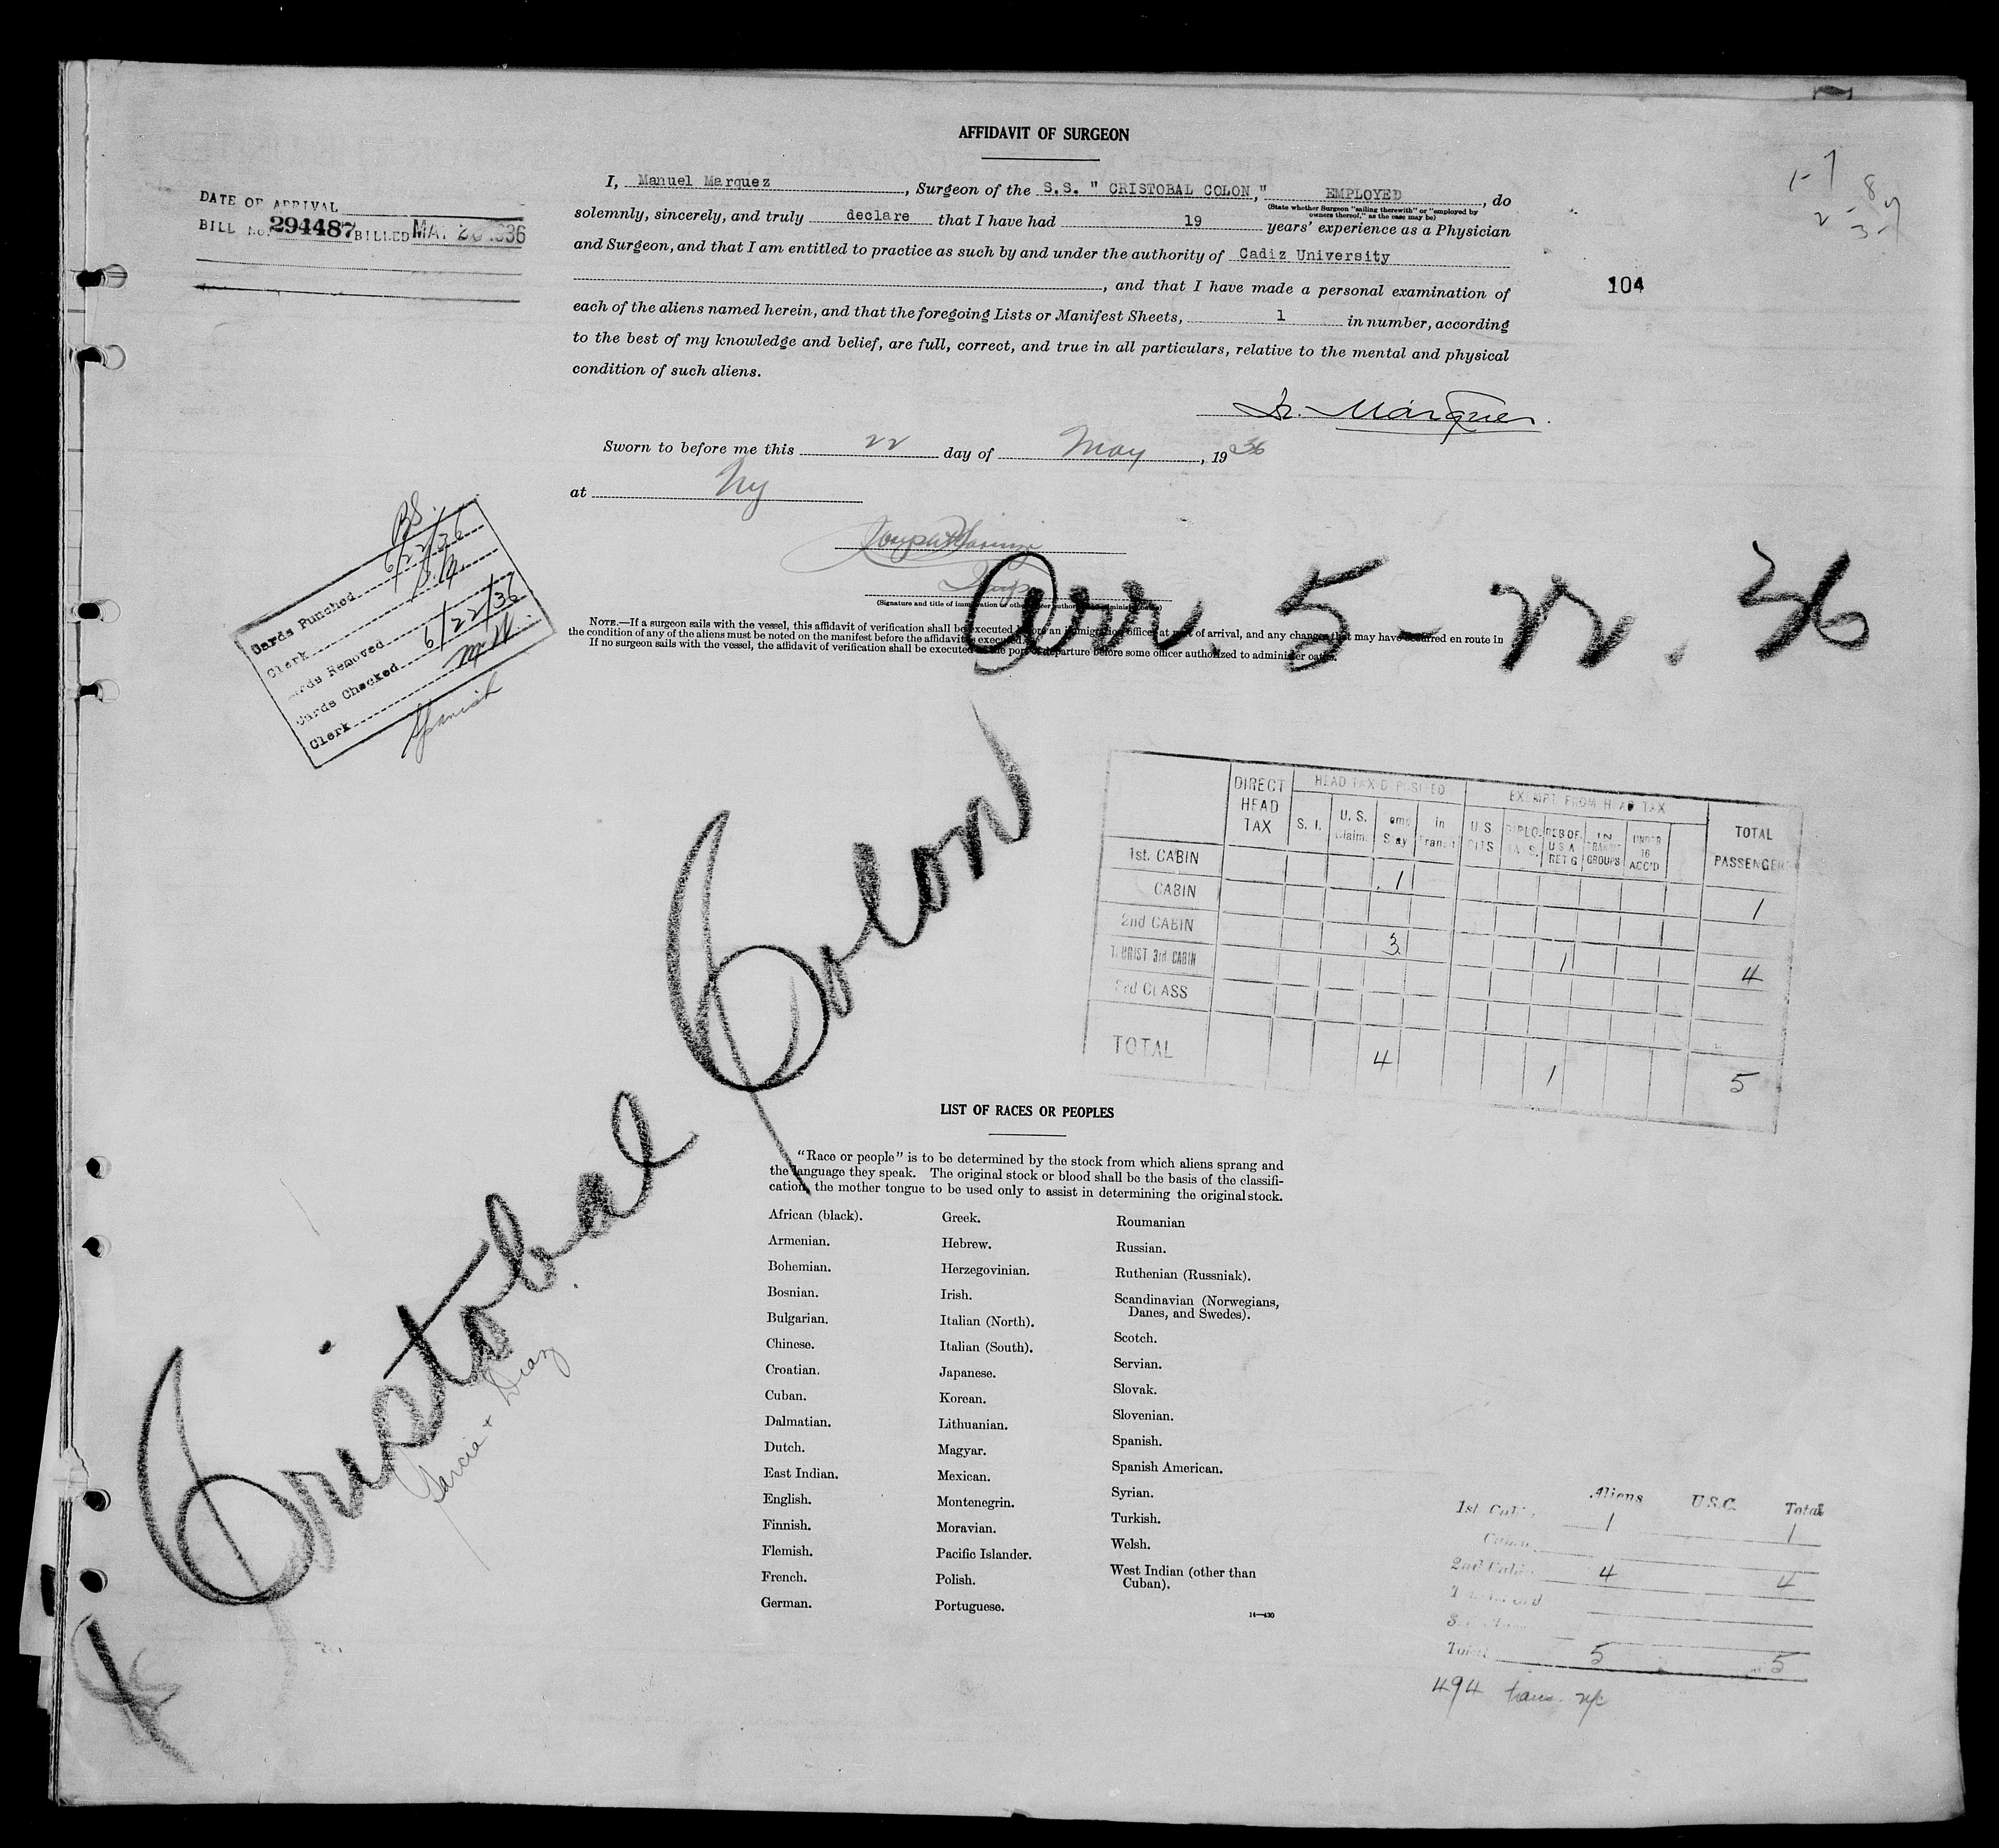 AFFIDAVIT OF SURGEON
I, Manuel Marquez, Surgeon of the S.S. " CRISTOBAL COLON," EMPLOYED, do
(State whether Surgeon "sailing therewith" or "employed by owners thereof," as the case may be)
solemnly, sincerely, and truly declare that I have had 19 years' experience as a Physician
and Surgeon, and that I am entitled to practice as such by and under the authority of Cadiz University
, and that I have made a personal examination of
each of the aliens named herein, and that the foregoing Lists or Manifest Sheets, 1 in number, according
to the best of my knowledge and belief, are full, correct, and true in all particulars, relative to the mental and physical
condition of such aliens.
Dr. Marquez.
Sworn to before me this 22 day of May, 1936
at Ny
Insp
(Signature and title of immigration or other officer authorized to administer oaths)
NOTE.—If a surgeon sails with the vessel, this affidavit of verification shall be executed before an immigration officer at port of arrival, and any changes that may have occurred en route in
the condition of any of the aliens must be noted on the manifest before the affidavit is executed.
If no surgeon sails with the vessel, the affidavit of verification shall be executed at the port of departure before some officer authorized to administer oaths.
DATE OF ARRIVAL
BILL No. 294487 BILLED MAY 26 1936
104
1-7
8
2-
3-7
Arr. 5-22.36
BS.
Cards Punched 6/22/36
Clerk
Cards Removed
Cards Checked 6/22/36
Clerk
Spanish
Cristobal Colon
Garcia + Diaz
DIRECT HEAD TAX
HEAD TAX DEPOSITED
EXEMPT FROM HEAD TAX
TOTAL PASSENGERS
S. I. U. S. Claim. Temp Stay In Transit U.S. CITS DIPLOMATS. RES OF. U S A RET G IN TRANSIT GROUPS UNDER 16 ACC'D
1st. CABIN 1 1
CABIN
2nd CABIN 3 1 4
TOURIST 3rd CABIN
3rd CLASS
TOTAL 4 1 5
LIST OF RACES OR PEOPLES
"Race or people" is to be determined by the stock from which aliens sprang and
the language they speak. The original stock or blood shall be the basis of the classifi-
cation, the mother tongue to be used only to assist in determining the original stock.
African (black).
Armenian.
Bohemian.
Bosnian.
Bulgarian.
Chinese.
Croatian.
Cuban.
Dalmatian.
Dutch.
East Indian.
English.
Finnish.
Flemish.
French.
German.
Greek.
Hebrew.
Herzegovinian.
Irish.
Italian (North).
Italian (South).
Japanese.
Korean.
Lithuanian.
Magyar.
Mexican.
Montenegrin.
Moravian.
Pacific Islander.
Polish.
Portuguese.
Roumanian
Russian.
Ruthenian (Russniak).
Scandinavian (Norwegians,
Danes, and Swedes).
Scotch.
Servian.
Slovak.
Slovenian.
Spanish.
Spanish American.
Syrian.
Turkish.
Welsh.
West Indian (other than
Cuban).
14—430
Aliens U.S.C. Total
1st Cabin 1 1
Cabin
2nd Cabin 4 4
Total 5 5
494 trans.